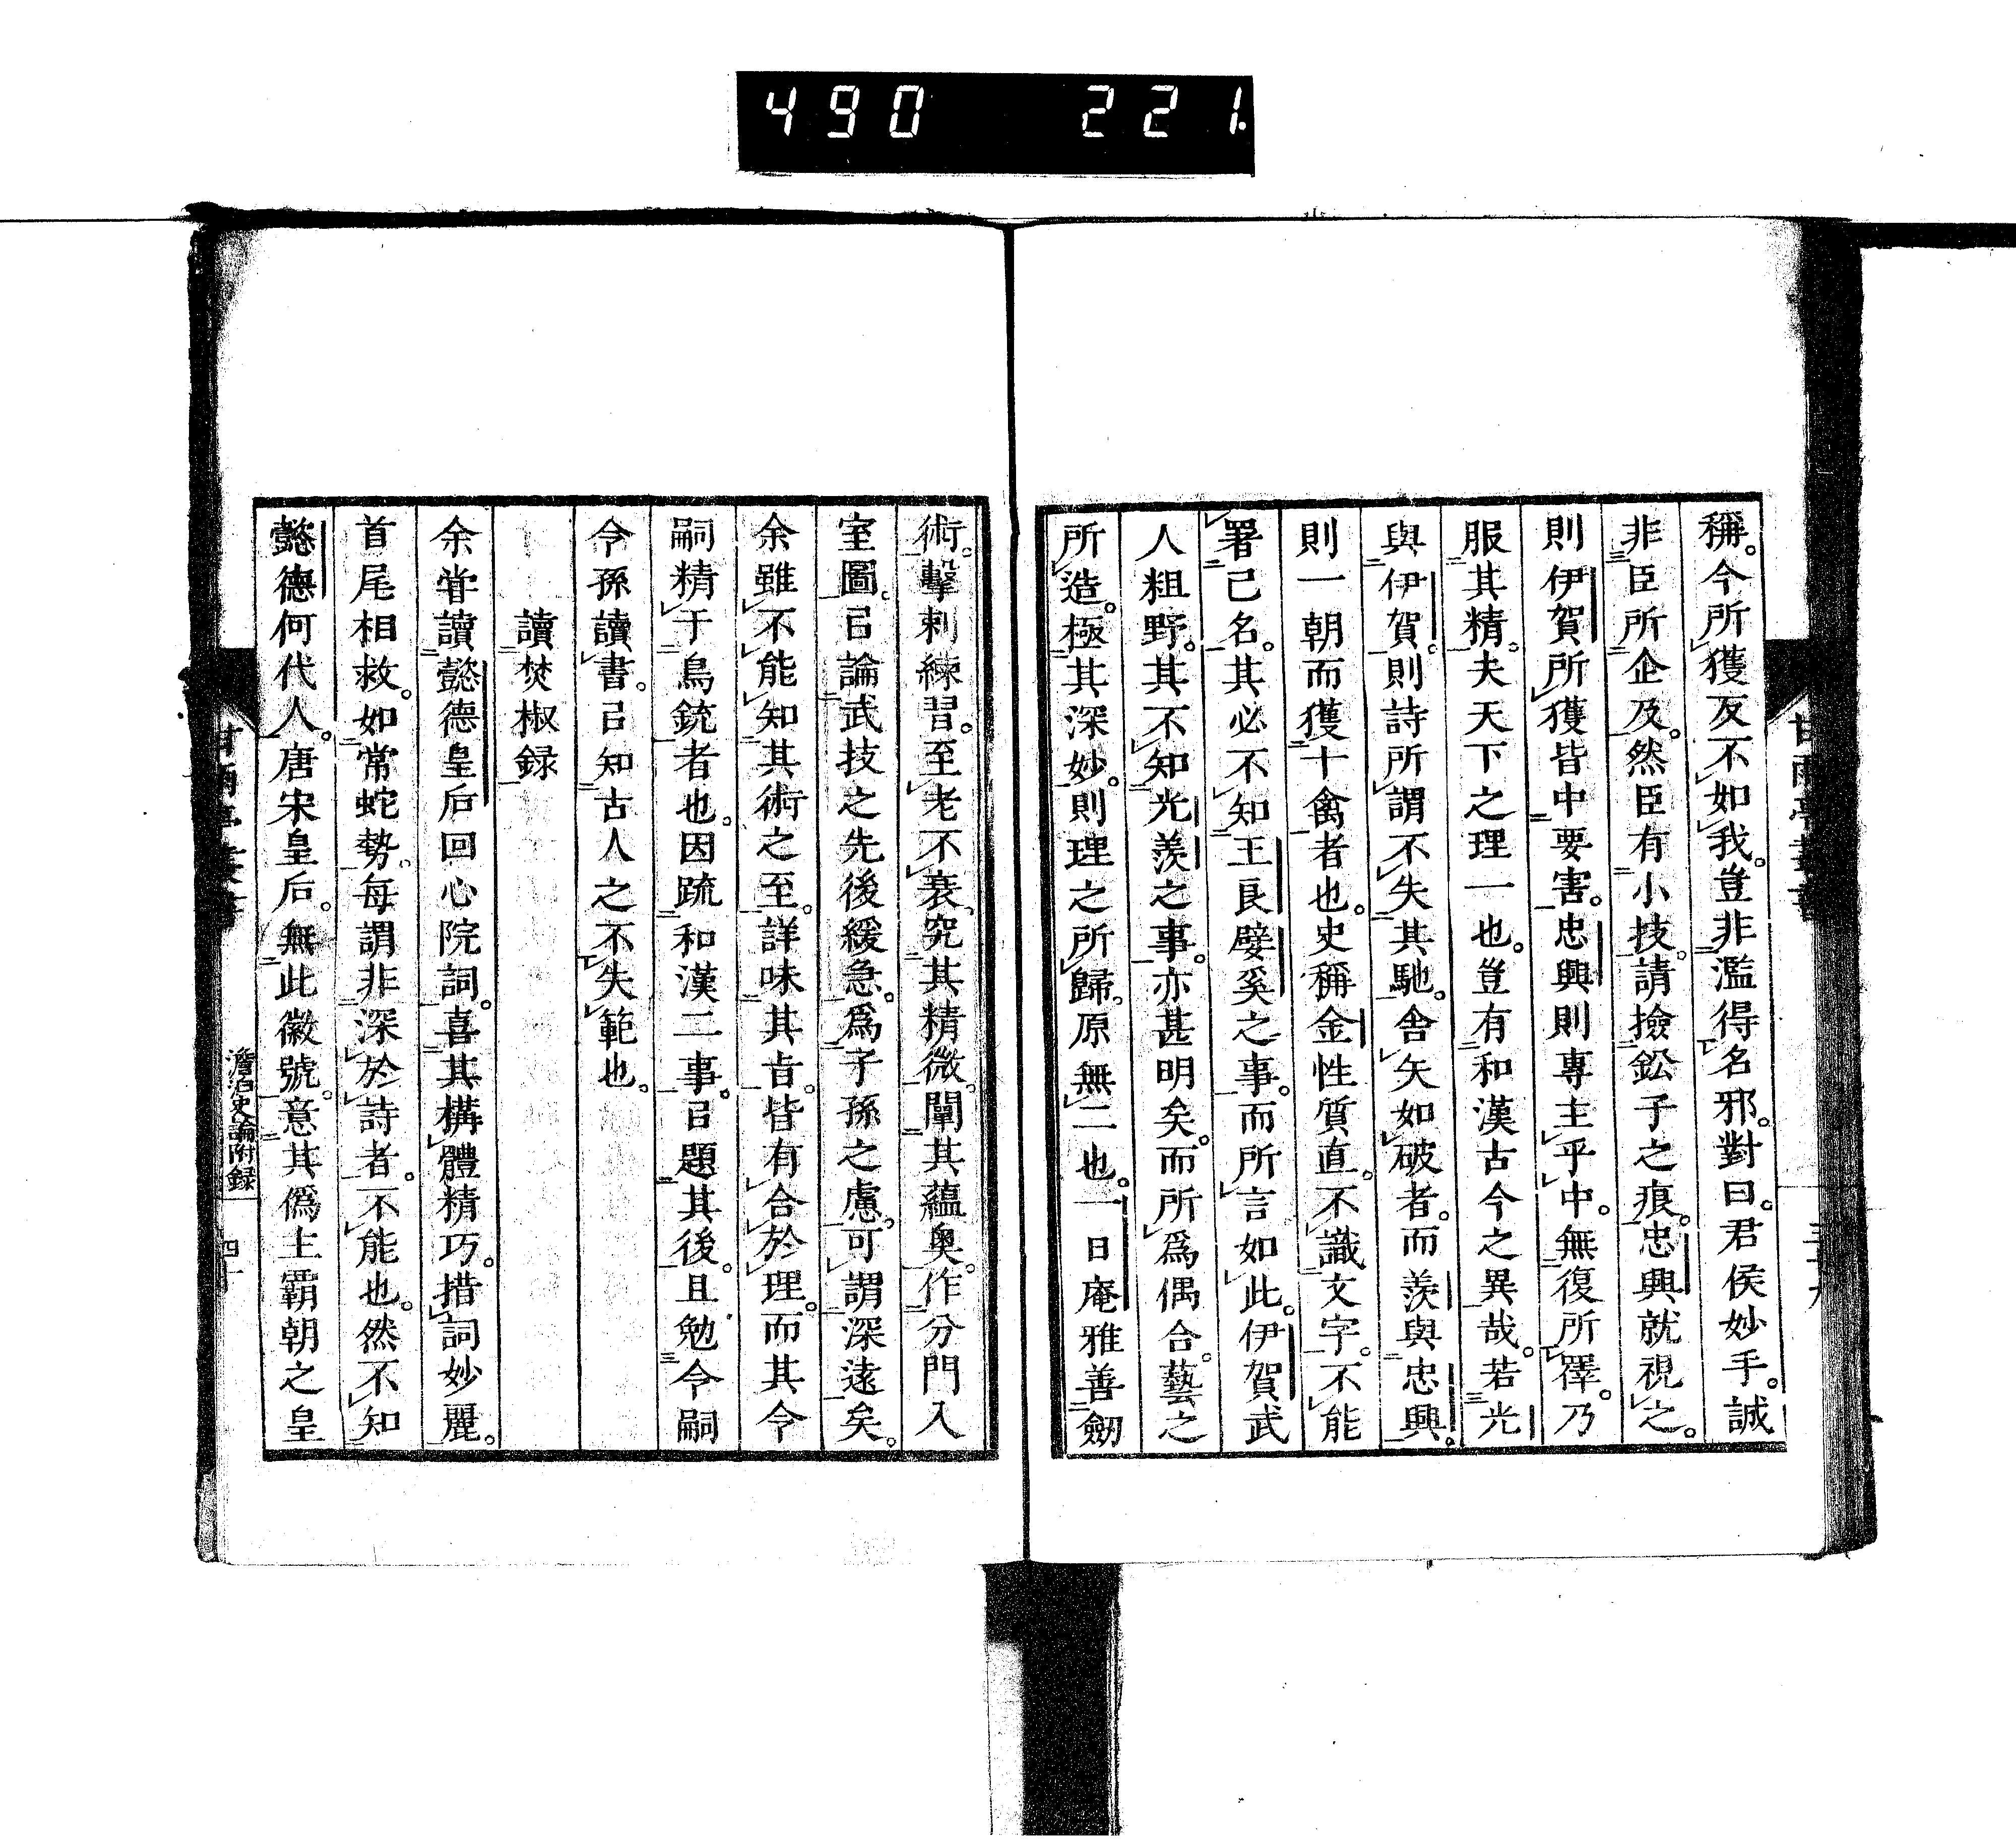 490 221
稱。今所獲反不如我。豈非濫得名邪。對曰。君侯妙手。誠
非臣所企及。然臣有小技。請撿鈆子之痕。忠興就視之。
則伊賀所獲皆中要害。忠興則專主乎中。無復所擇。乃
服其精。夫天下之理一也。豈有和漢古今之異哉。若光
與伊賀。則詩所謂不失其馳。舍矢如破者。而羨與忠興。
則一朝而獲十禽者也。史稱金性質直。不識文字。不能
署己名。其必不知王良嬖奚之事。而所言如此。伊賀武
人粗野。其不知光羨之事。亦甚明矣。而所爲偶合。藝之
所造。極其深妙。則理之所歸。原無二也。一日庵雅善劒
術。擊刺練習。至老不衰、究其精微。闡其蘊奥。作分門入
室圖。㠯論武技之先後緩急。爲子孫之慮。可謂深遠矣。
余雖不能知其術之至。詳味其旨。皆有合於理。而其令
嗣精于鳥銃者也。因疏和漢二事。㠯題其後。且勉令嗣
令孫讀書。㠯知古人之不失範也。
讀焚椒録
余甞讀懿德皇后回心院詞。喜其構體精巧。措詞妙麗。
首尾相救。如常蛇勢。每謂非深於詩者。不能也。然不知
懿德何代人。唐宋皇后。無此徽號。意其僞主霸朝之皇
澹泊史論附録